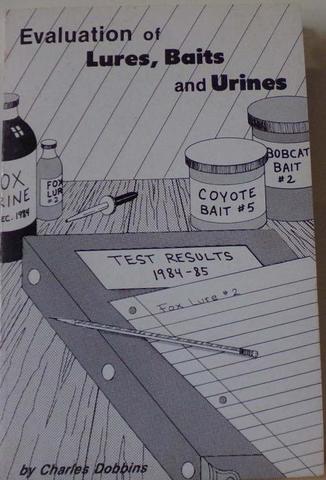 Evaluation of
Lures, Baits
and Urines
OX
RINE
EC. 1984
FOX
LUR
#2
COYOTE
BAIT #5
BOBCAT
BAIT
#2
TEST RESULTS
1984-85
Fox Lure #2
by Charles Dobbins